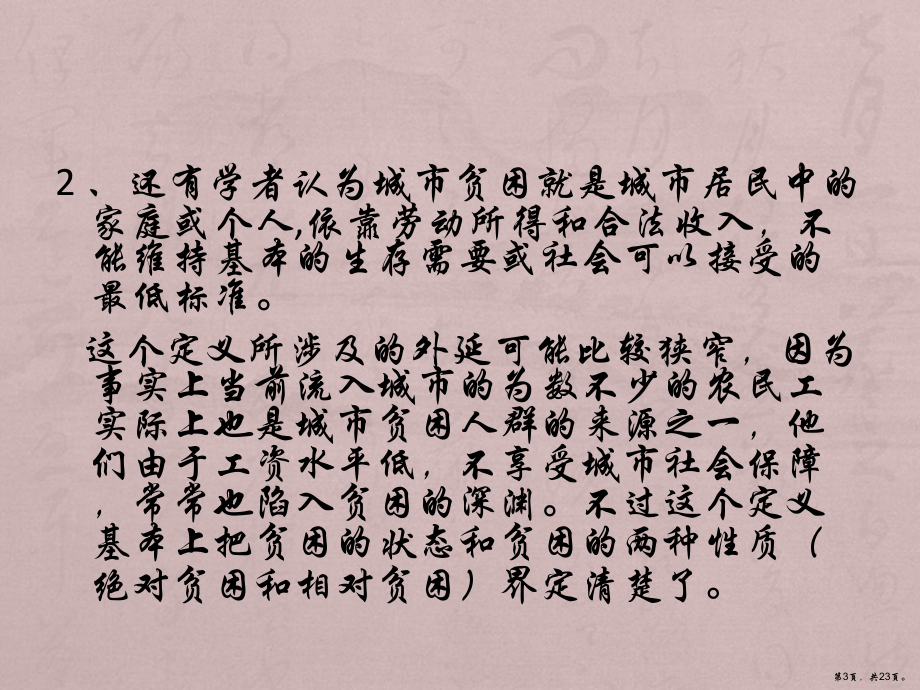 2、还有学者认为城市贫困就是城市居民中的
家庭或个人,依靠劳动所得和合法收入，不
能维持基本的生存需要或社会可以接受的
最低标准。
这个定义所涉及的外延可能比较狭窄，因为
事实上当前流入城市的为数不少的农民工
实际上也是城市贫困人群的来源之一，他
们由于工资水平低，不享受城市社会保障
，常常也陷入贫困的深渊。不过这个定义
基本上把贫困的状态和贫困的两种性质（
绝对贫困和相对贫困）界定清楚了。
第3页，共23页。